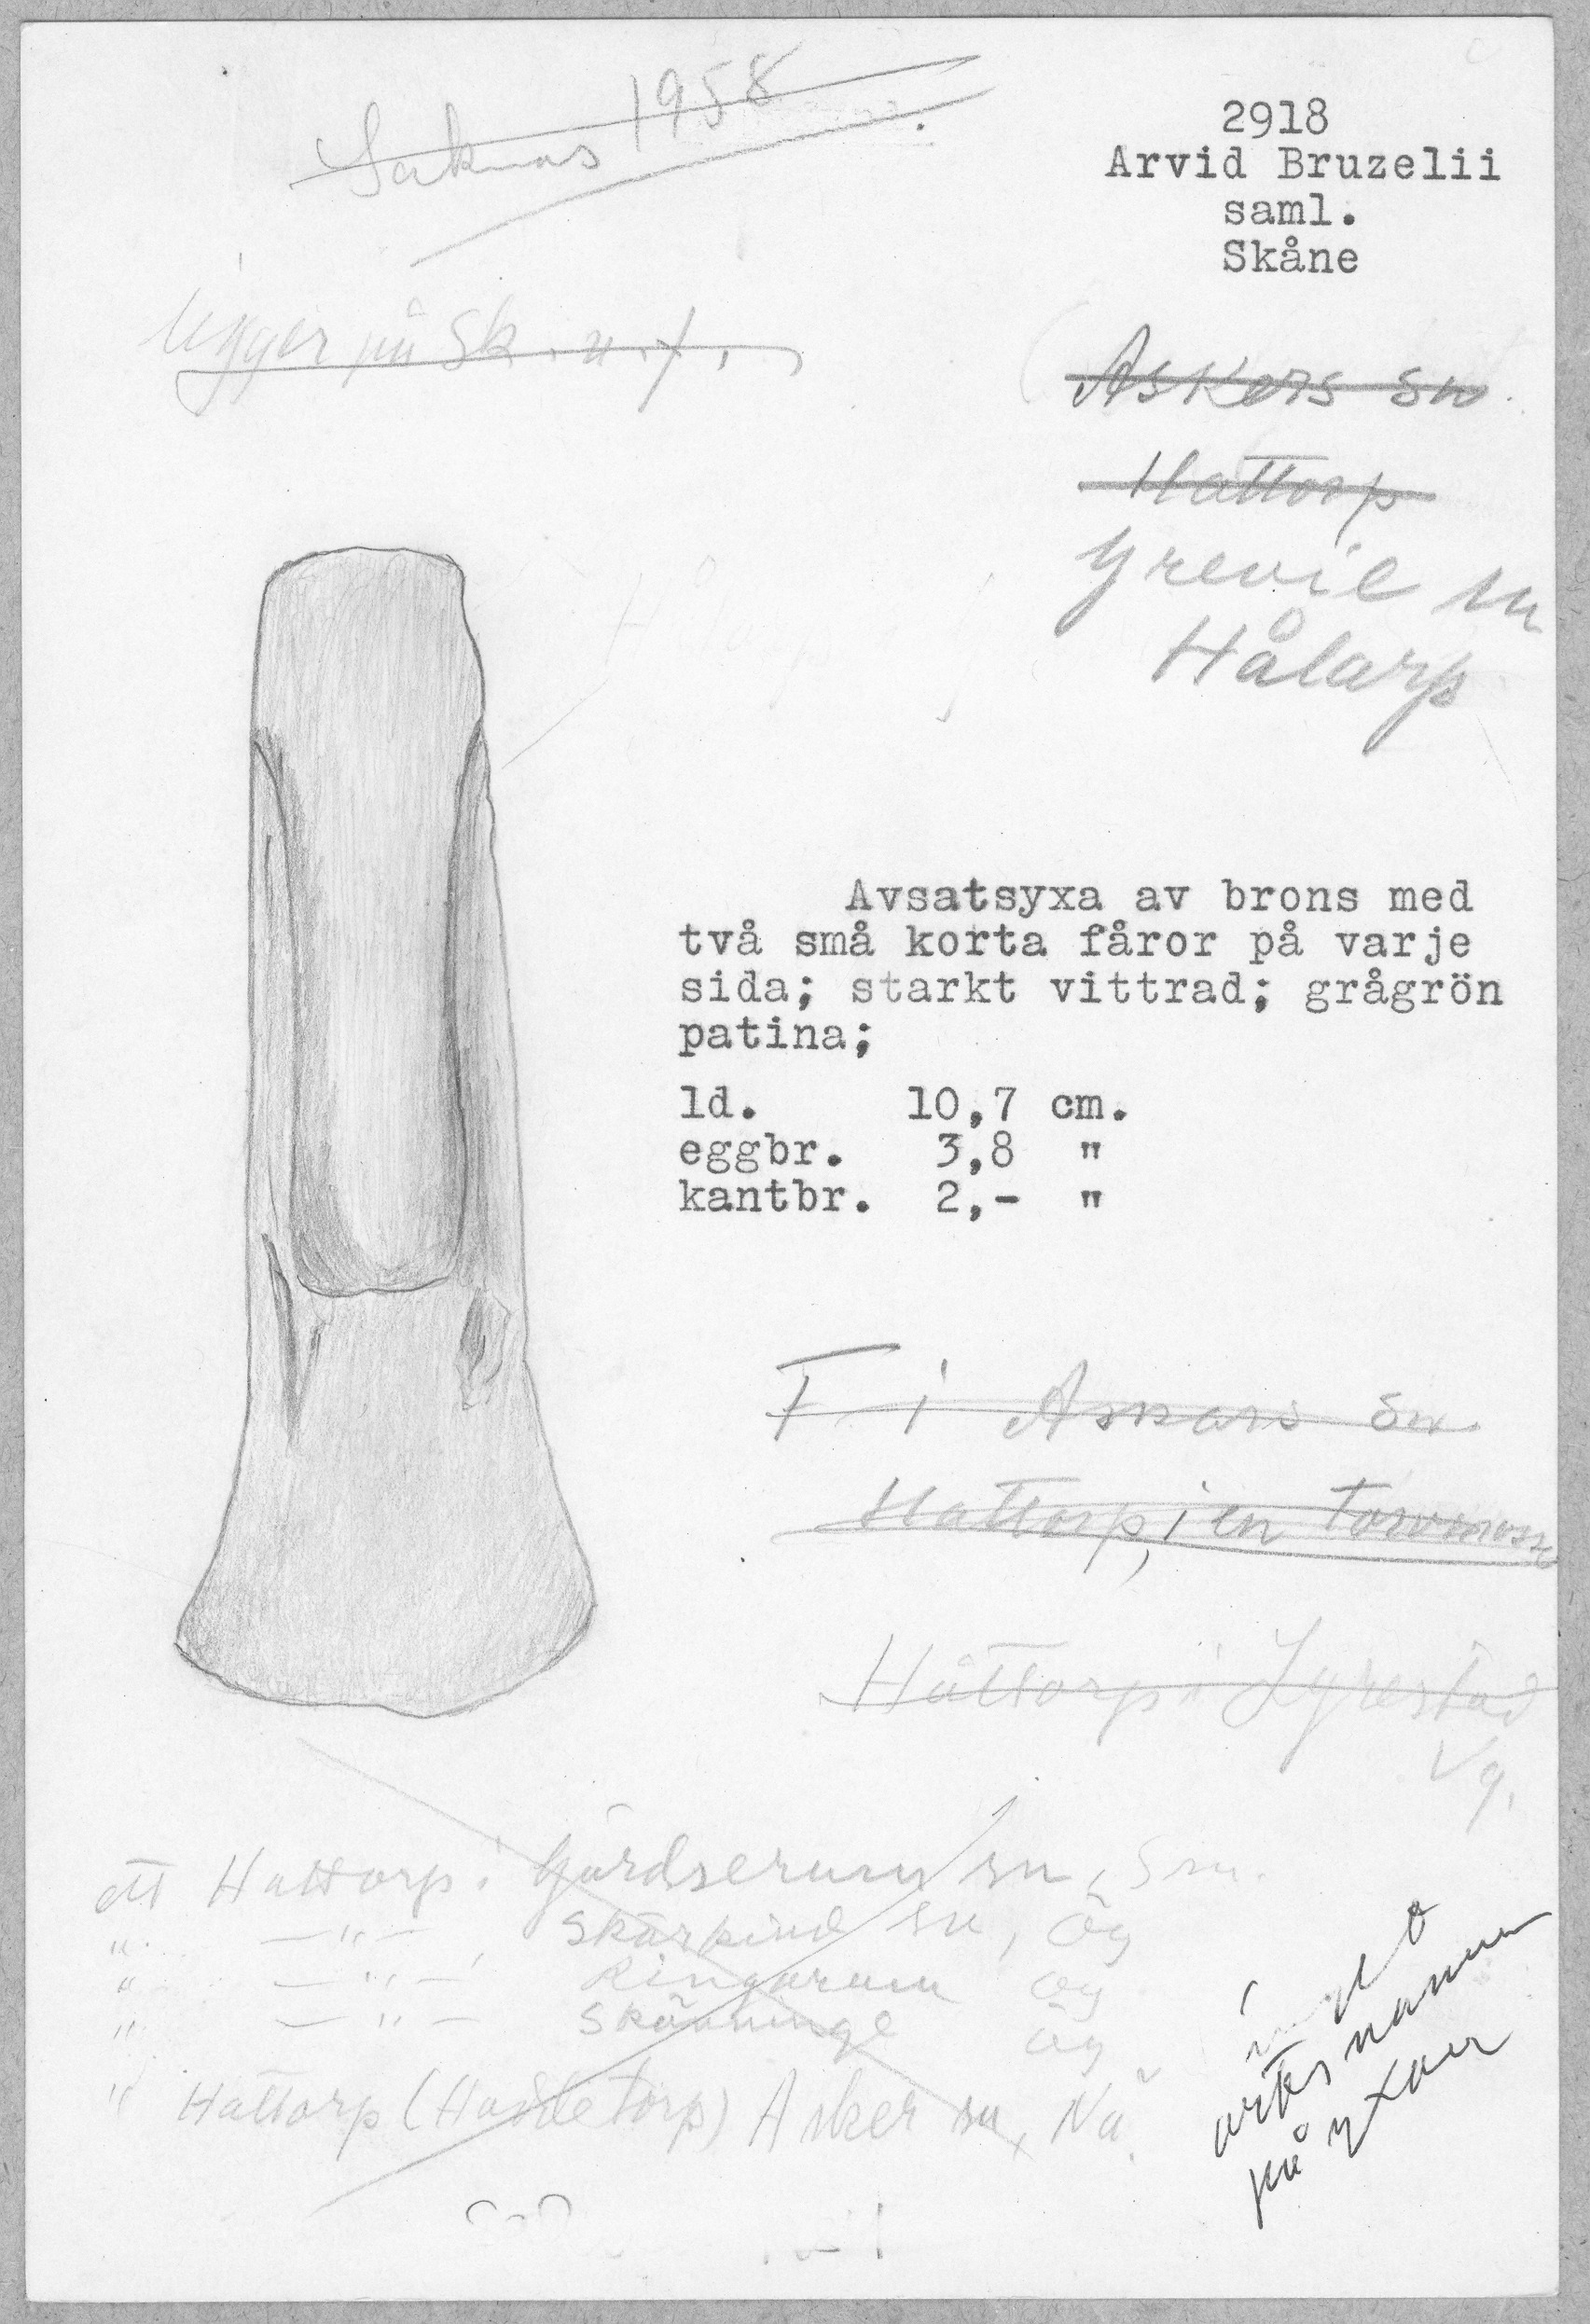 Saknas 1958
2918
Arvid Bruzelii
saml.
Skåne
ligger på Sk. u. f.
Askers sn.
Hattorp
Grevie sn
Hålarp
Avsatsyxa av brons med
två små korta fåror på varje
sida; starkt vittrad; grågrön
patina;
ld. 10,7 cm.
eggbr. 3,8 "
kantbr. 2,- "
F i Askers sn
Hattorp, i en torvmosse
Håttorp i Lyrestad
Vg.
ett Hattorp i Gärdserum sn, Sm.
" —"— , Skärkind sn, Ög
" —"— , Ringarum Ög
" —"— Skänninge Ög
" Hattorp (Haddetorp) Asker sn, Nä.
intet
ortsnamn
på yxan